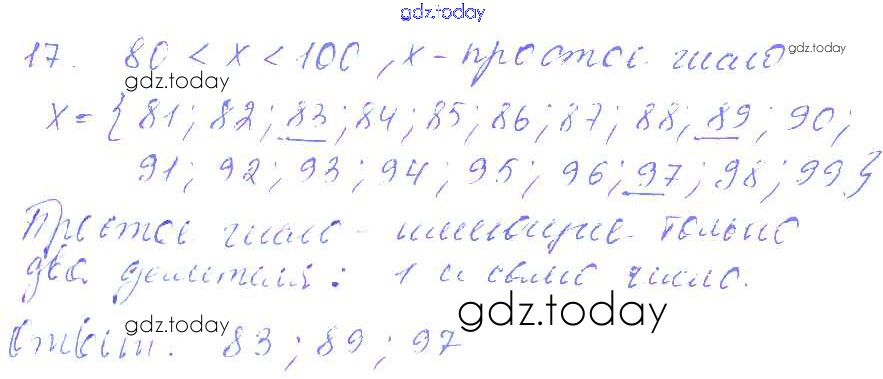 gdz.today
17. 80 < x < 100, x - простое число gdz.today
gdz.today
x = { 81; 82; 83; 84; 85; 86; 87; 88; 89; 90;
91; 92; 93; 94; 95; 96; 97; 98; 99 }
Простое число - имеющие только
два делителя: 1 и само число.
gdz.today gdz.today
Ответ. 83; 89; 97